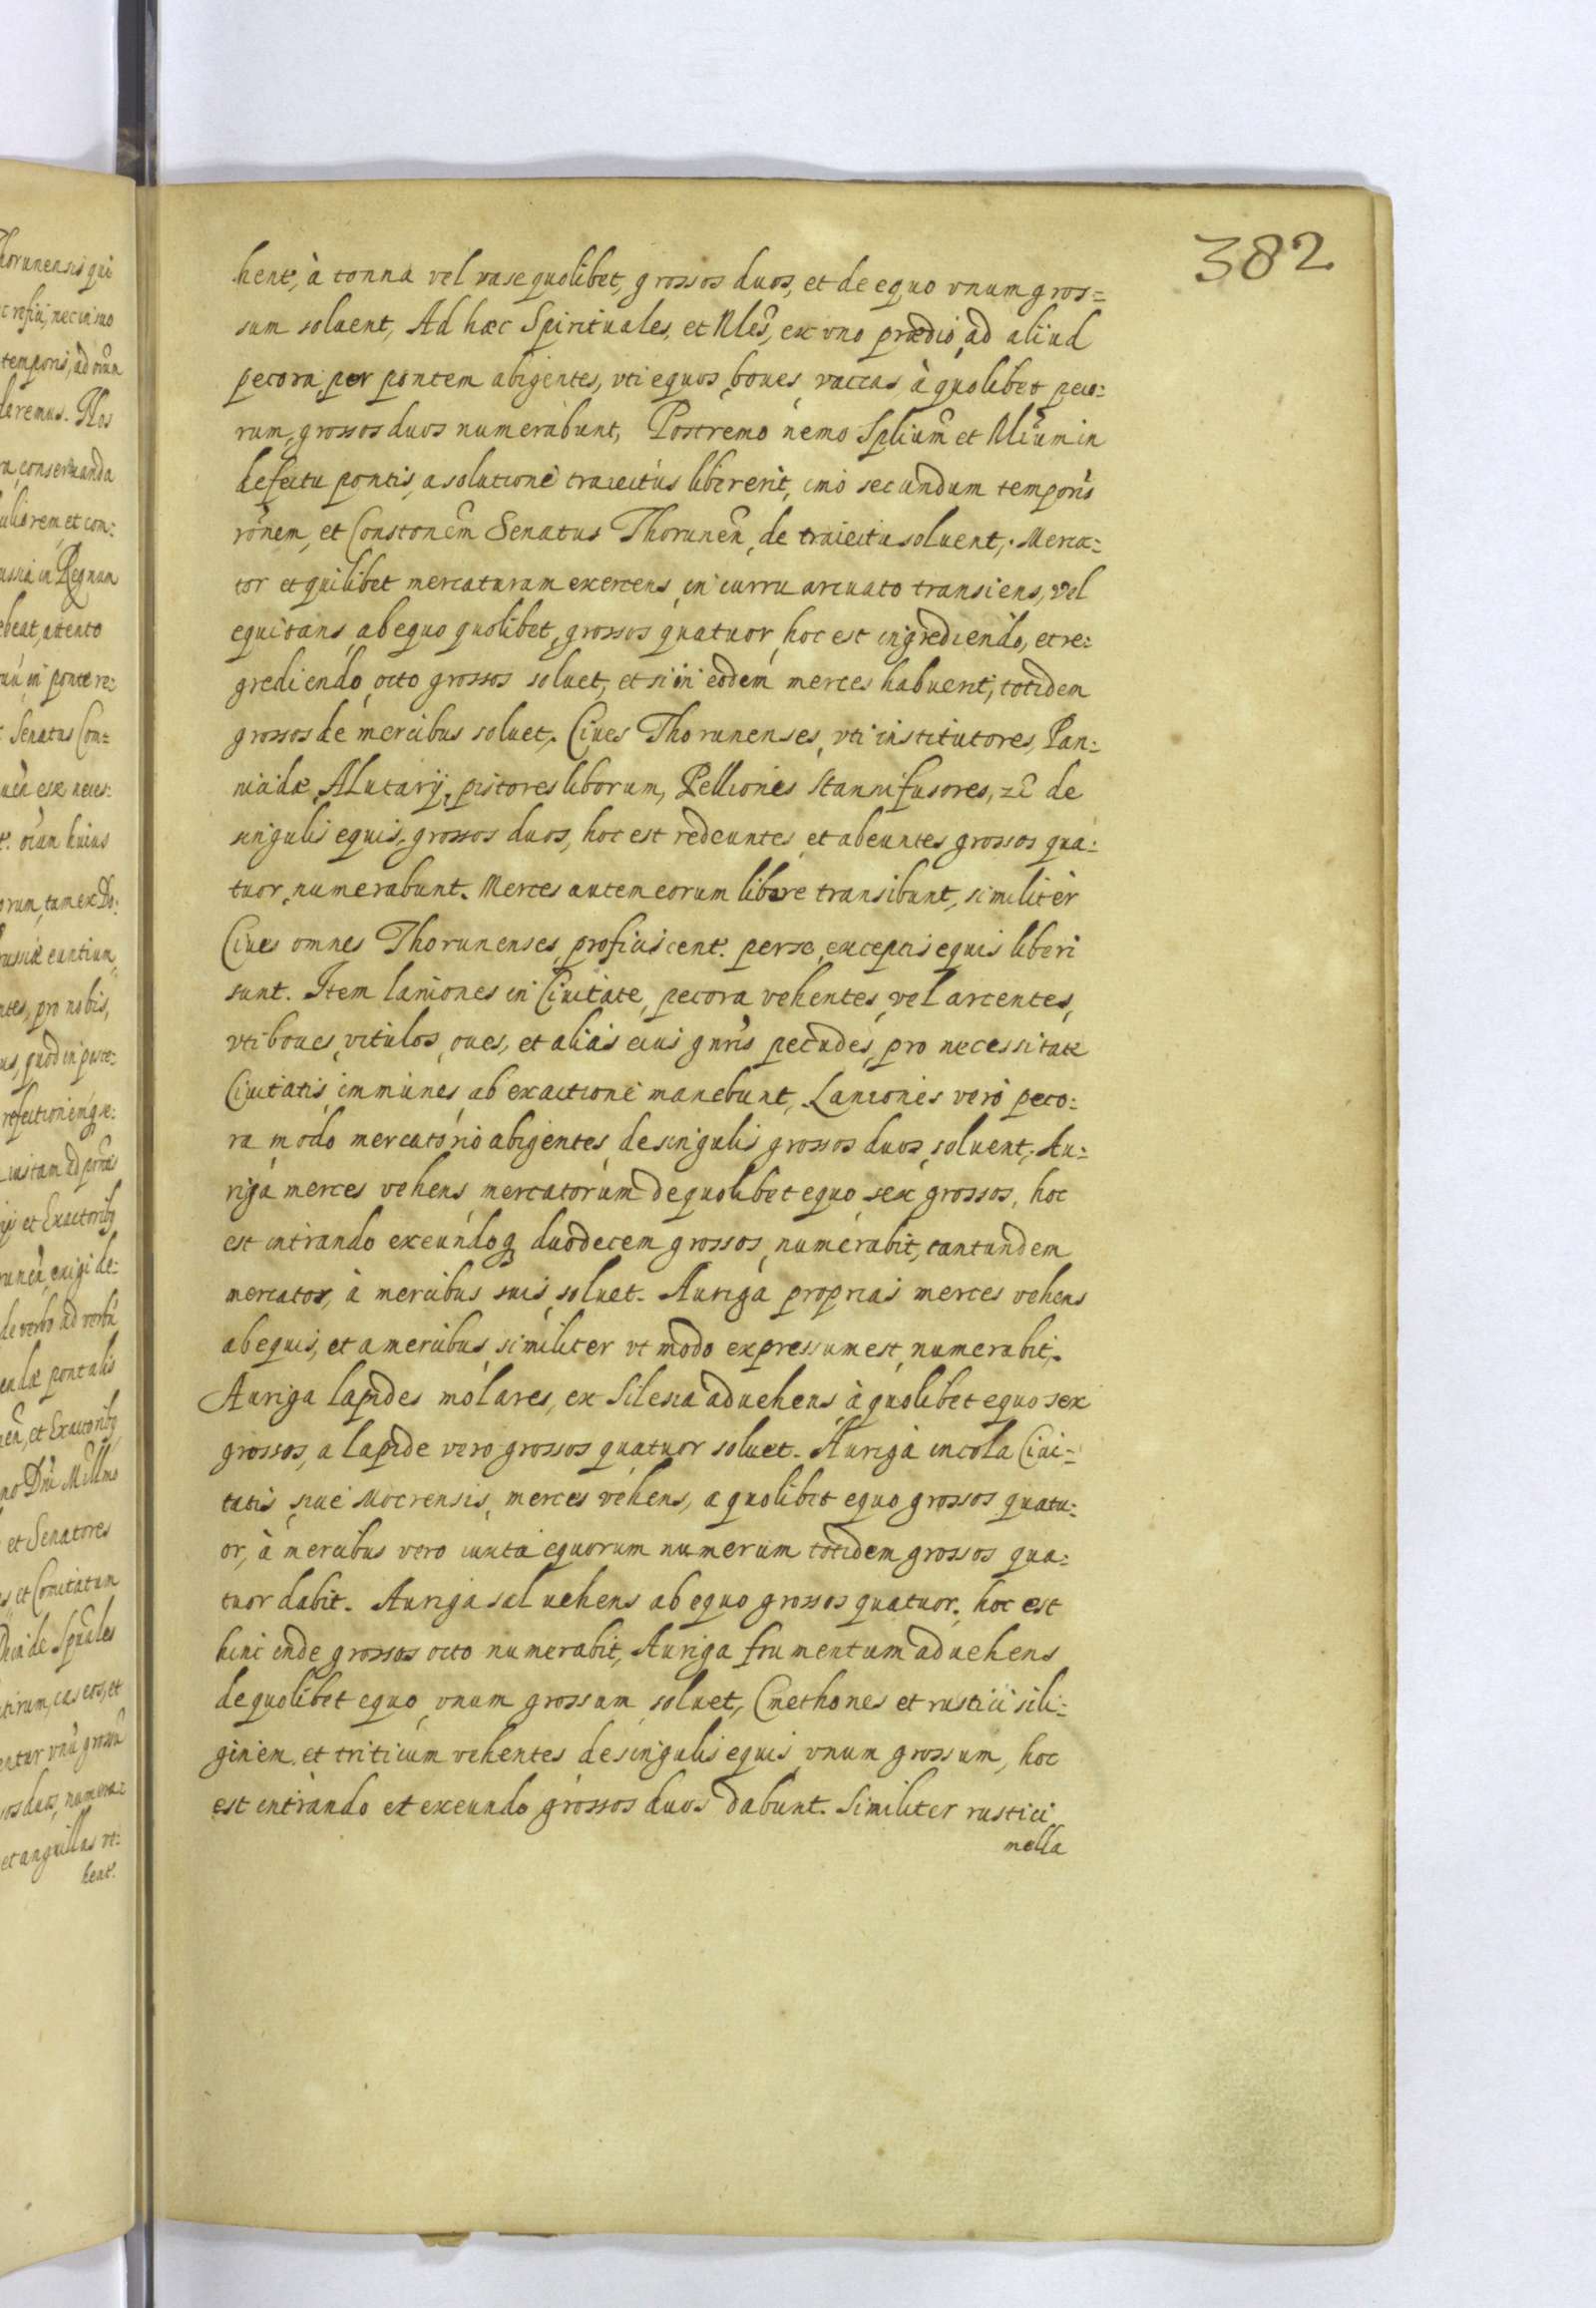 382
hent, à tonna vel vase quolibet, grossos duos, et de equo vnum gros=
sum soluent, Ad hæc Spirituales, et Nles, ex vno prædio, ad aliud
pecora per pontem abigentes, vti equos, boues, vaccas, à quolibet peco:
rum, grossos duos numerabunt, Postremò nemo Splium et Nlium in
defectu pontis, a solutione traiectus liber erit, imò secundum temporis
ronem, et Constonem Senatus Thorunen, de traiectu soluent, Merca:
tor et quilibet mercaturam exercens, in curru arcuato transiens, vel
equitans, ab equo quolibet, grossos quatuor, hoc est ingrediendo, et re:
grediendo, octo grossos soluet, et si in eodem merces habuerit, totidem
grossos de mercibus soluet, Ciues Thorunenses, vti institutores, Pan:
nicidæ, Alutarij, pistores liborum, Pelliones Stannifusores, zc de
singulis equis, grossos duos, hoc est redeuntes, et abeuntes grossos qua:
tuor, numerabunt. Merces autem eorum libere transibunt, similiter
Ciues omnes Thorunenses, proficiscent. per se, exceptis equis liberi
sunt. Item laniones in Ciuitate, pecora vehentes, vel arcentes,
vti boues, vitulos, oues, et alias eius gnris pecudes, pro necessitate
Ciuitatis, immunes ab exactione manebunt, Laniones verò peco:
ra modo mercatorio abigentes, de singulis grossos duos, soluent, Au:
riga merces vehens, mercatorum de quolibet equo, sex grossos, hoc
est intrando exeundoq duodecem grossos, numerabit, tantundem
mercator, à mercibus suis, soluet. Auriga proprias merces vehens
ab equis, et a mercibus, similiter vt modo expressum est, numerabit.
Auriga lapides molares, ex Silesia aduehens, à quolibet equo sex
grossos, a lapide vero grossos quatuor soluet. Auriga incola Ciui=
tatis, siue Mocrensis, merces vehens, a quolibet equo grossos quatu:
or, à mercibus vero iuxta equorum numerum totidem grossos qua:
tuor dabit. Auriga sal uehens ab equo grossos quatuor, hoc est
hinc inde grossos octo numerabit, Auriga frumentum aduehens
de quolibet equo, vnum grossum, soluet, Cmethones et rustici sili:
ginem, et triticum vehentes, de singulis equis, vnum grossum, hoc
est intrando et exeundo grossos duos dabunt. Similiter rustici
mella